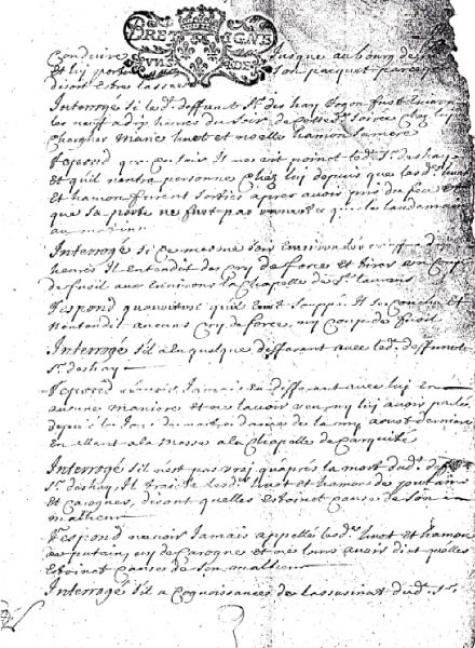 BRETAIGNE
Conduire jusque au bourg de
et luy porter son pacquet parce qu'
disoit estre lassee
Interrogé si le d. deffunt Sr. deshay
les neuf a dix heures du soir de chez luy
chercher Marie huet et noelle hamon sa mere
Respond que ce soir Il ne vit poinct led. Sr. deshay
et quil nentra personne chez luy depuis que lesd. huet
et hamon furent sorties apres avoir pris du feu et
que sa porte ne fust pas ouverte que le landemain
au matin
Interrogé si ce mesme soir environ les dix
heures Il entendit des cry de force et tirer un coup
de fusil aux environs la Chapelle de St. laurens
Respond quausitost quil eut souppé Il se coucha et
nentendit aucuns cry de force, ny coup de fusil
Interrogé sil a eu quelque differant avec led. deffunct
Sr. deshay
Respond navoir Jamais eu differant avec luy en
aucune maniere et ne lavoir veu, ny luy avoir parlé
depuis le Jour du mardi de la my aoust derniere
En allant a la Messe a la Chapelle de
Interrogé sil nest pas vray quapres la mort dud. deff
Sr. deshay Il traita lesd. huet et hamon de putains
et carognes, disant quelles estoinct causes de son
malheur
Respond navoir Jamais appellé lesd. huet et hamon
ne putain, ny de carogne et ne leurs avoir dit quelles
estoinct causes de son malheur
Interrogé sil a cognoissance de lassasinat dud. Sr.